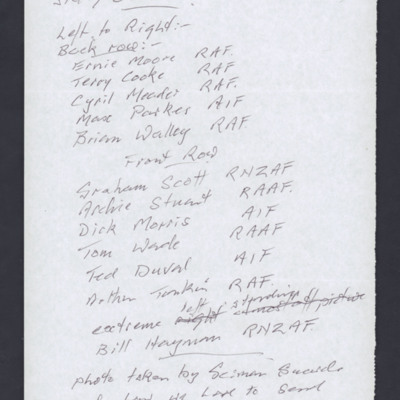 Left to Right:-
Back row:-
Ernie Moore RAF
Terry Cooke RAF
Cyril Meader RAF.
Max Parkes AIF
Brian Walley RAF
Front Row
Graham Scott RNZAF
Archie Stuart RAAF.
Dick Morris AIF
Tom Wade RAAF
Ted Duval AIF
Arthur Tonkin RAF.
extreme left standing
Bill Hayman RNZAF.
photo taken by
to send